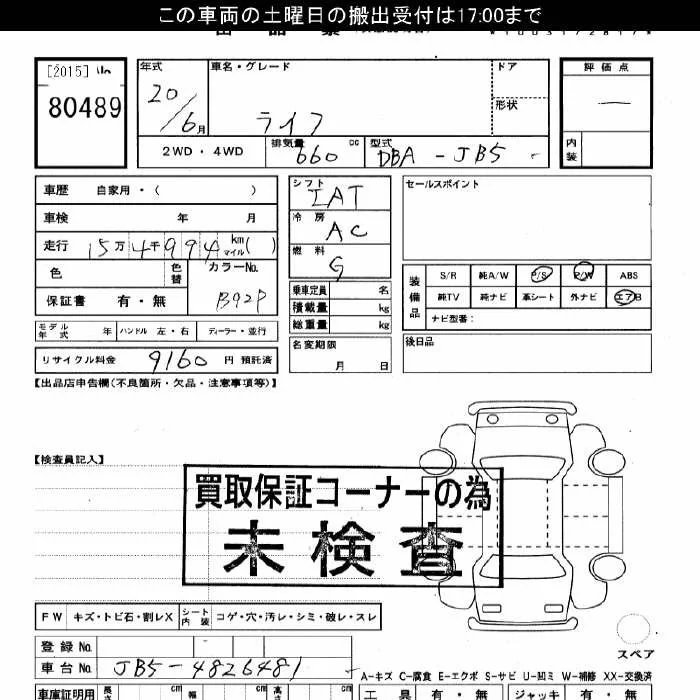 この車両の土曜日の搬出受付は17:00まで
[2015]
80489
年式 20/6月
車名・グレード ライフ
ドア
形状
評価点 —
内装
2WD・4WD
排気量 660 cc
型式 DBA - JB5 -
車歴 自家用・( )
車検 年 月
走行 15万4千994 km マイル( )
色 色替
カラーNo. B92P
保証書 有・無
モデル年式 年
ハンドル 左・右
ディーラー・並行
リサイクル料金 9160 円 預託済
シフト IAT
冷房 AC
燃料 G
乗車定員 名
積載量 kg
総重量 kg
名変期限 月 日
セールスポイント
装備品
S/R 純A/W P/S P/W ABS
純TV 純ナビ 革シート 外ナビ エアB
ナビ型番:
後日品
【出品店申告欄(不良箇所・欠品・注意事項等)】
【検査員記入】
買取保証コーナーの為
未検査
FW キズ・トビ石・割レX
シート内装 コゲ・穴・汚レ・シミ・破レ・スレ
スペア
登録No.
車台No. JB5-4826481
A-キズ C-腐食 E-エクボ S-サビ U-凹ミ W-補修 XX-交換済
車庫証明用 長さ cm 幅 cm 高さ cm
工具 有・無
ジャッキ 有・無